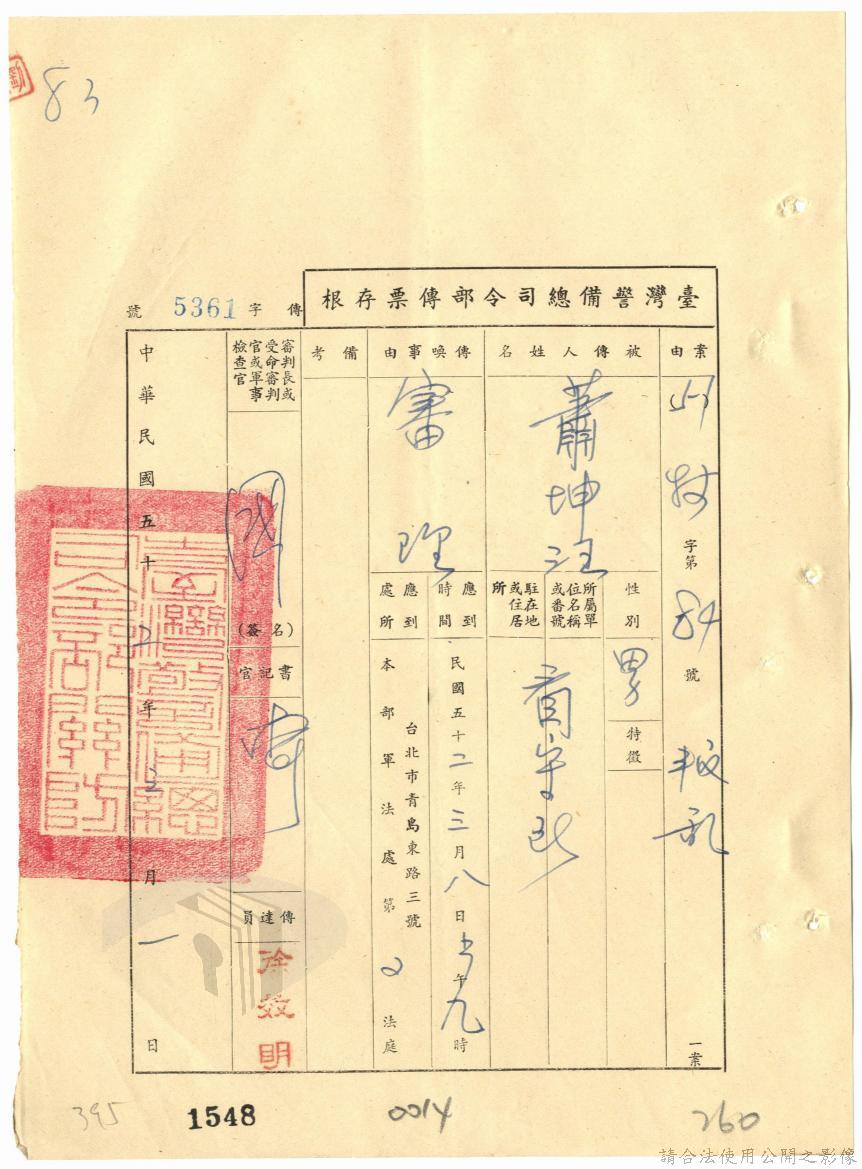 83
臺灣警備總司令部傳票存根
傳字 5361 號
案由
字第84號 叛乱
一案
被傳人姓名
蕭坤旺
性別
男
特徵
所屬單位名稱或番號
駐在地或住居所
看守所
傳喚事由
審理
應到時間
民國五十二年三月八日上午九時
應到處所
台北市青島東路三號
本部軍法處第2法庭
備考
審判長或受命審判官或軍事檢查官
(簽名)
書記官
傳達員
徐效明
中華民國五十2年三月一日
臺灣警備總司令部關防
395
1548
0014
260
請合法使用公開之影像